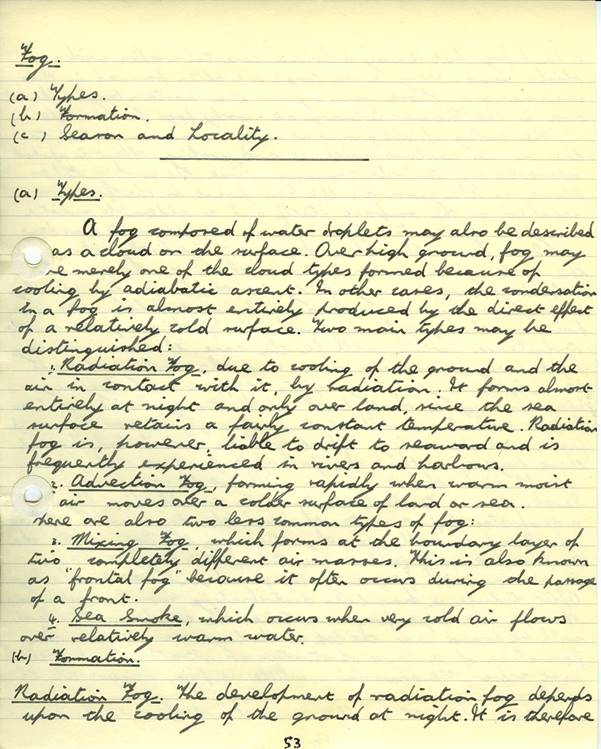 Fog.
(a) Types.
(b) Formation.
(c) Season and Locality.
(a) Types.
A fog composed of water droplets may also be described
as a cloud on the surface. Over high ground, fog may
be merely one of the cloud types formed because of
cooling by adiabatic ascent. In other cases, the condensation
in a fog is almost entirely produced by the direct effect
of a relatively cold surface. Two main types may be
distinguished:
1. Radiation Fog, due to cooling of the ground and the
air in contact with it, by radiation. It forms almost
entirely at night and only over land, since the sea
surface retains a fairly constant temperature. Radiation
fog is, however, liable to drift to seaward and is
frequently experienced in rivers and harbours.
2. Advection Fog, forming rapidly when warm moist
air moves over a colder surface of land or sea.
There are also two less common types of fog:
3. Mixing Fog, which forms at the boundary layer of
two completely different air masses. This is also known
as "frontal fog" because it often occurs during the passage
of a front.
4. Sea Smoke, which occurs when very cold air flows
over relatively warm water.
(b) Formation.
Radiation Fog. The development of radiation fog depends
upon the cooling of the ground at night. It is therefore
53